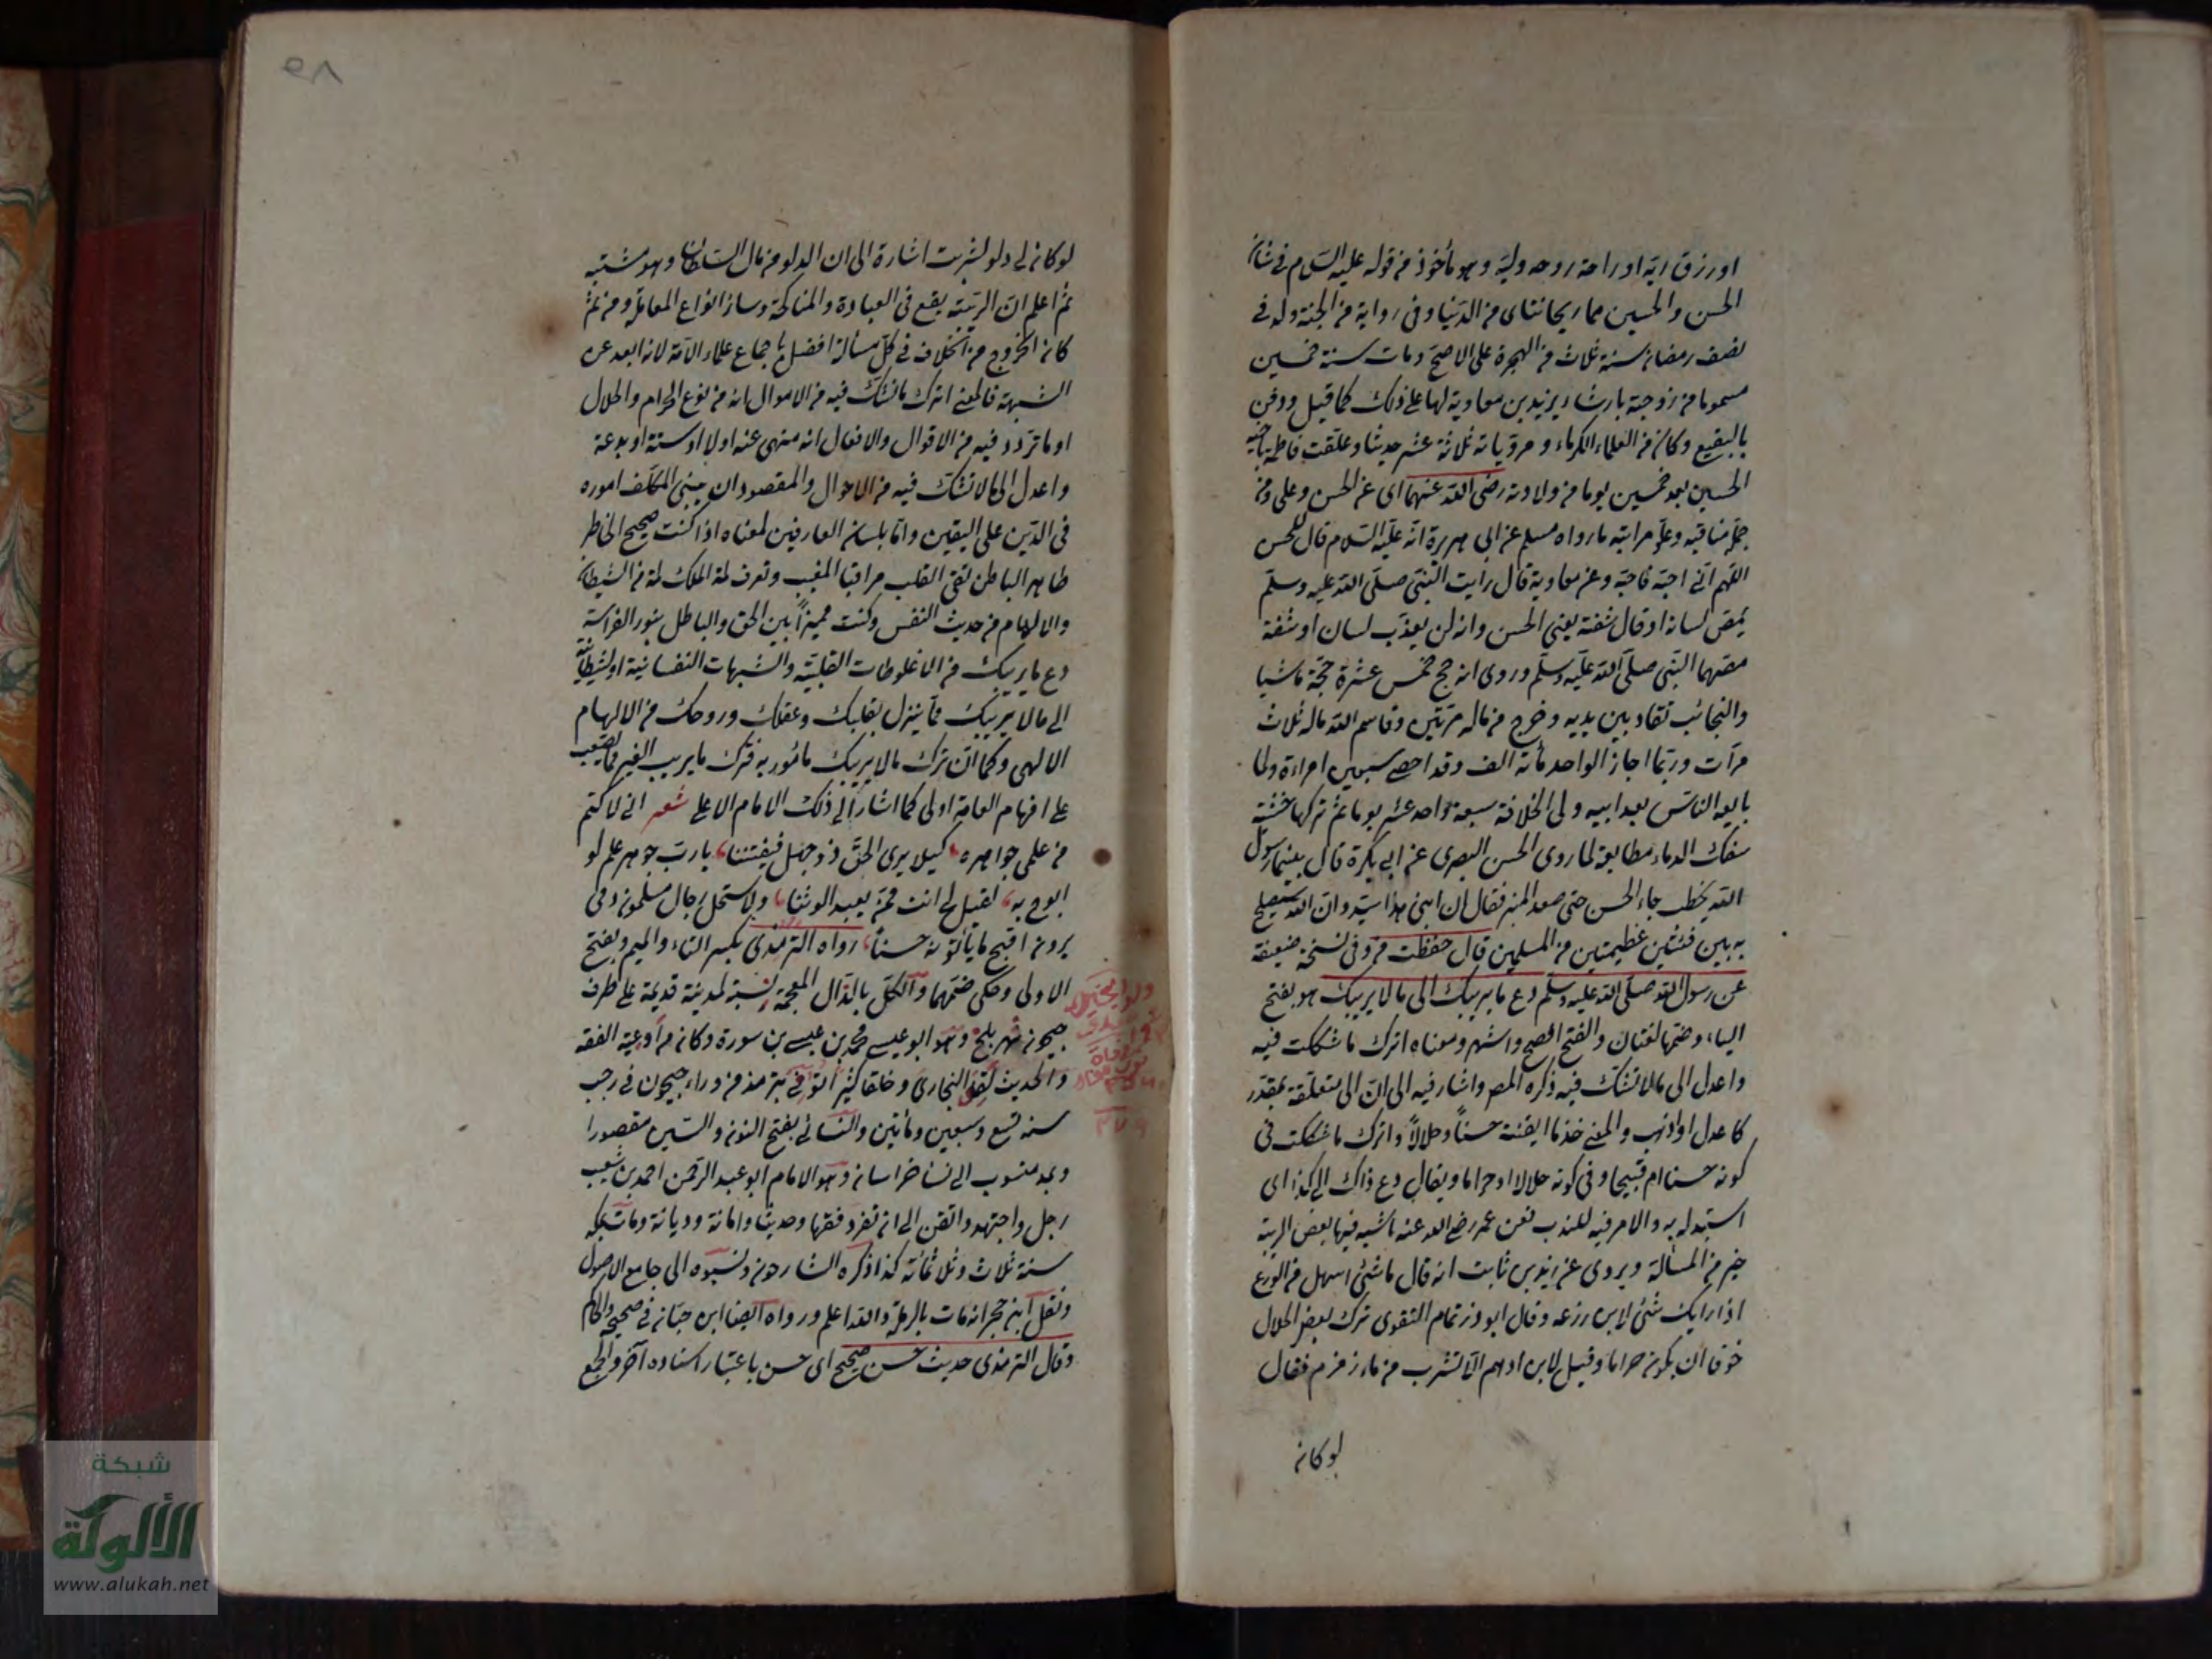 او رزق ربه او راحة روحه وليه وهو مأخوذ من قوله عليه السلام في شان
الحسن والحسين هما ريحانتاى من الدنيا وفي رواية من الجنة ولد في
نصف رمضان سنة ثلاث من الهجرة على الاصح ومات سنة خمسين
مسموما من زوجته بارشاد يزيد بن معاوية لها على ذلك كما قيل ودفن
بالبقيع وكان من العلماء الكرماء ومروياته ثلاثة عشر حديثا وعلقت فاطمة
الحسين بعد خمسين يوما من ولادته رضي الله عنهما اى عن الحسن وعلى ومن
جملة مناقبه وعلو مراتبه ما رواه مسلم عن ابى هريرة انه عليه السلام قال للحسن
اللهم انى احبه فاحبه وعن معاوية قال رأيت النبي صلى الله عليه وسلم
يمص لسانه او قال شفته يعنى الحسن وانه لن يعذب لسان او شفة
مصهما النبي صلى الله عليه وسلم وروى انه حج خمس عشرة حجة ماشيا
والنجائب تقاد بين يديه وخرج من ماله مرتين وقاسم الله ماله ثلاث
مرات وربما اجاز الواحد مأته الف وقد احصى سبعين امراءة ولما
بايع الناس بعد ابيه ولى الخلافة سبعة واحد عشر يوما ثم تركها خشية
سفك الدماء مطابقة لما روى الحسن البصرى عن ابى بكرة قال بينما رسول
الله يخطب جاء الحسن حتى صعد المنبر فقال ان ابنى هذا سيد وان الله سيصلح
به بين فئتين عظيمتين من المسلمين قال حفظت من وفى نسخة ضعيفة
عن رسول الله صلى الله عليه وسلم دع ما يريبك الى ما لا يريبك هو بفتح
الياء وضمها لغتان والفتح افصح واشهر ومعناه اترك ما شككت فيه
واعدل الى ما لا تشك فيه ذكره المص واشار فيه الى ان الى متعلقة بمقدر
كاعدل او اذهب والمعنى خذ ما ايقنته حسنا وحلالا واترك ما شككت فى
كونه حسنا ام قبيحا وفى كونه حلالا او حراما ويقال دع ذاك الى كذا اى
استبدله به والامر فيه للندب فعن عمر رضي الله عنه ماشبه فيها بعض الريبة
خير من المسألة ويروى عن زيد بن ثابت انه قال ما شئ اسهل من الورع
اذا رابك شئ لا بن رزعه وقال ابو ذر تمام التقوى ترك بعض الحلال
خوفا ان يكون حراما وقيل لابن ادهم الا تشرب من ماء زمزم فقال
لو كان
٩٨
لو كان لى دلو لشربت اشارة الى ان الدلو من مال السلطان وهو مشتبه
ثم اعلم ان الريبة يقع فى العبادة والمناكحة وسائر انواع المعاملة ومن ثم
كان الخروج من الخلاف فى كل مسألة افضل باجماع علماء الامة لانه ابعد عن
الشبهة فالمعنى اترك ما تشك فيه من الاموال انه من نوع الحرام والحلال
او ما تردد فيه من الاقوال والافعال انه منهى عنه اولا او سنة او بدعة
واعدل الى ما لا تشك فيه من الاحوال والمقصود ان يبنى المكلف اموره
فى الدين على اليقين واما بلسان العارفين لمعناه اذا كنت صحيح الخاطر
طاهر الباطن نقى القلب مراقبا للغيب وتعرف لمة الملك لمة من الشيطان
والالهام من حديث النفس وكنت مميزا بين الحق والباطل بنور الفراسة
دع ما يريبك من الاغلوطات القلبية والشبهات النفسانية او الشيطانية
الى ما لا يريبك مما ينزل بقلبك وعقلك وروحك من الالهام
الالهى وكما ان ترك ما لا يريبك مأمور به فترك ما يريب الغير مما يصعب
على افهام العامة اولى كما اشار الى ذلك الامام الاعلى شعر انى لاكتم
من علمى جواهره كيلا يرى الحق ذو جهل فيفتننا يا رب جوهر علم لو
ابوح به لقيل لى انت ممن يعبد الوثنا ولاستحل رجال مسلمون دمى
يرون اقبح ما يأتونه حسنا رواه الترمذى بكسر التاء والميم وبفتح
الاولى وحكى ضمهما والكل بالذال المعجمة نسبة لمدينة قديمة على طرف
جيحون نهر بلخ وهو ابو عيسى محمد بن عيسى بن سورة وكان من اوعية الفقه
والحديث لقى البخارى وخلقا كثيرا توفى بترمذ من وراء جيحون فى رجب
سنة تسع وسبعين ومأتين والنسائى بفتح النون والسين مقصورا
وبمد منسوب الى نسا خراسان وهو الامام ابو عبد الرحمن احمد بن شعيب
رحل واجتهد واتقن الى ان تفرد فقها وحديثا وامانة وديانة ومات بمكة
سنة ثلاث وثلاثمائة كذا ذكره الشارحون ونسبوه الى جامع الاصول
ونقل ابن حجر انه مات بالرملة والله اعلم ورواه ايضا ابن حبان فى صحيحه والحاكم
وقال الترمذى حديث حسن صحيح اى حسن باعتبار اسناده آخر والجمع
وفاة
٢٧٩
شبكة
الألوكة
www.alukah.net